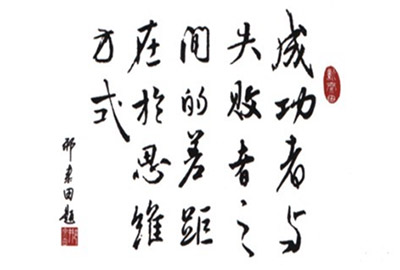 成功者与
失败者之
间的差距
在於思维
方式
邢秉田题